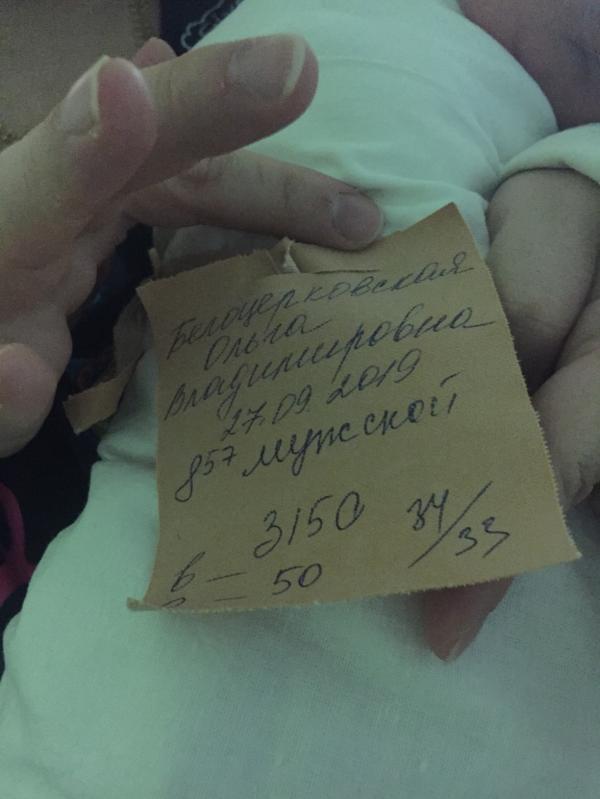 Белоцерковская
Ольга
Владимировна
27.09.2019
8⁵⁷ мужской
3150 34/33
в — 50